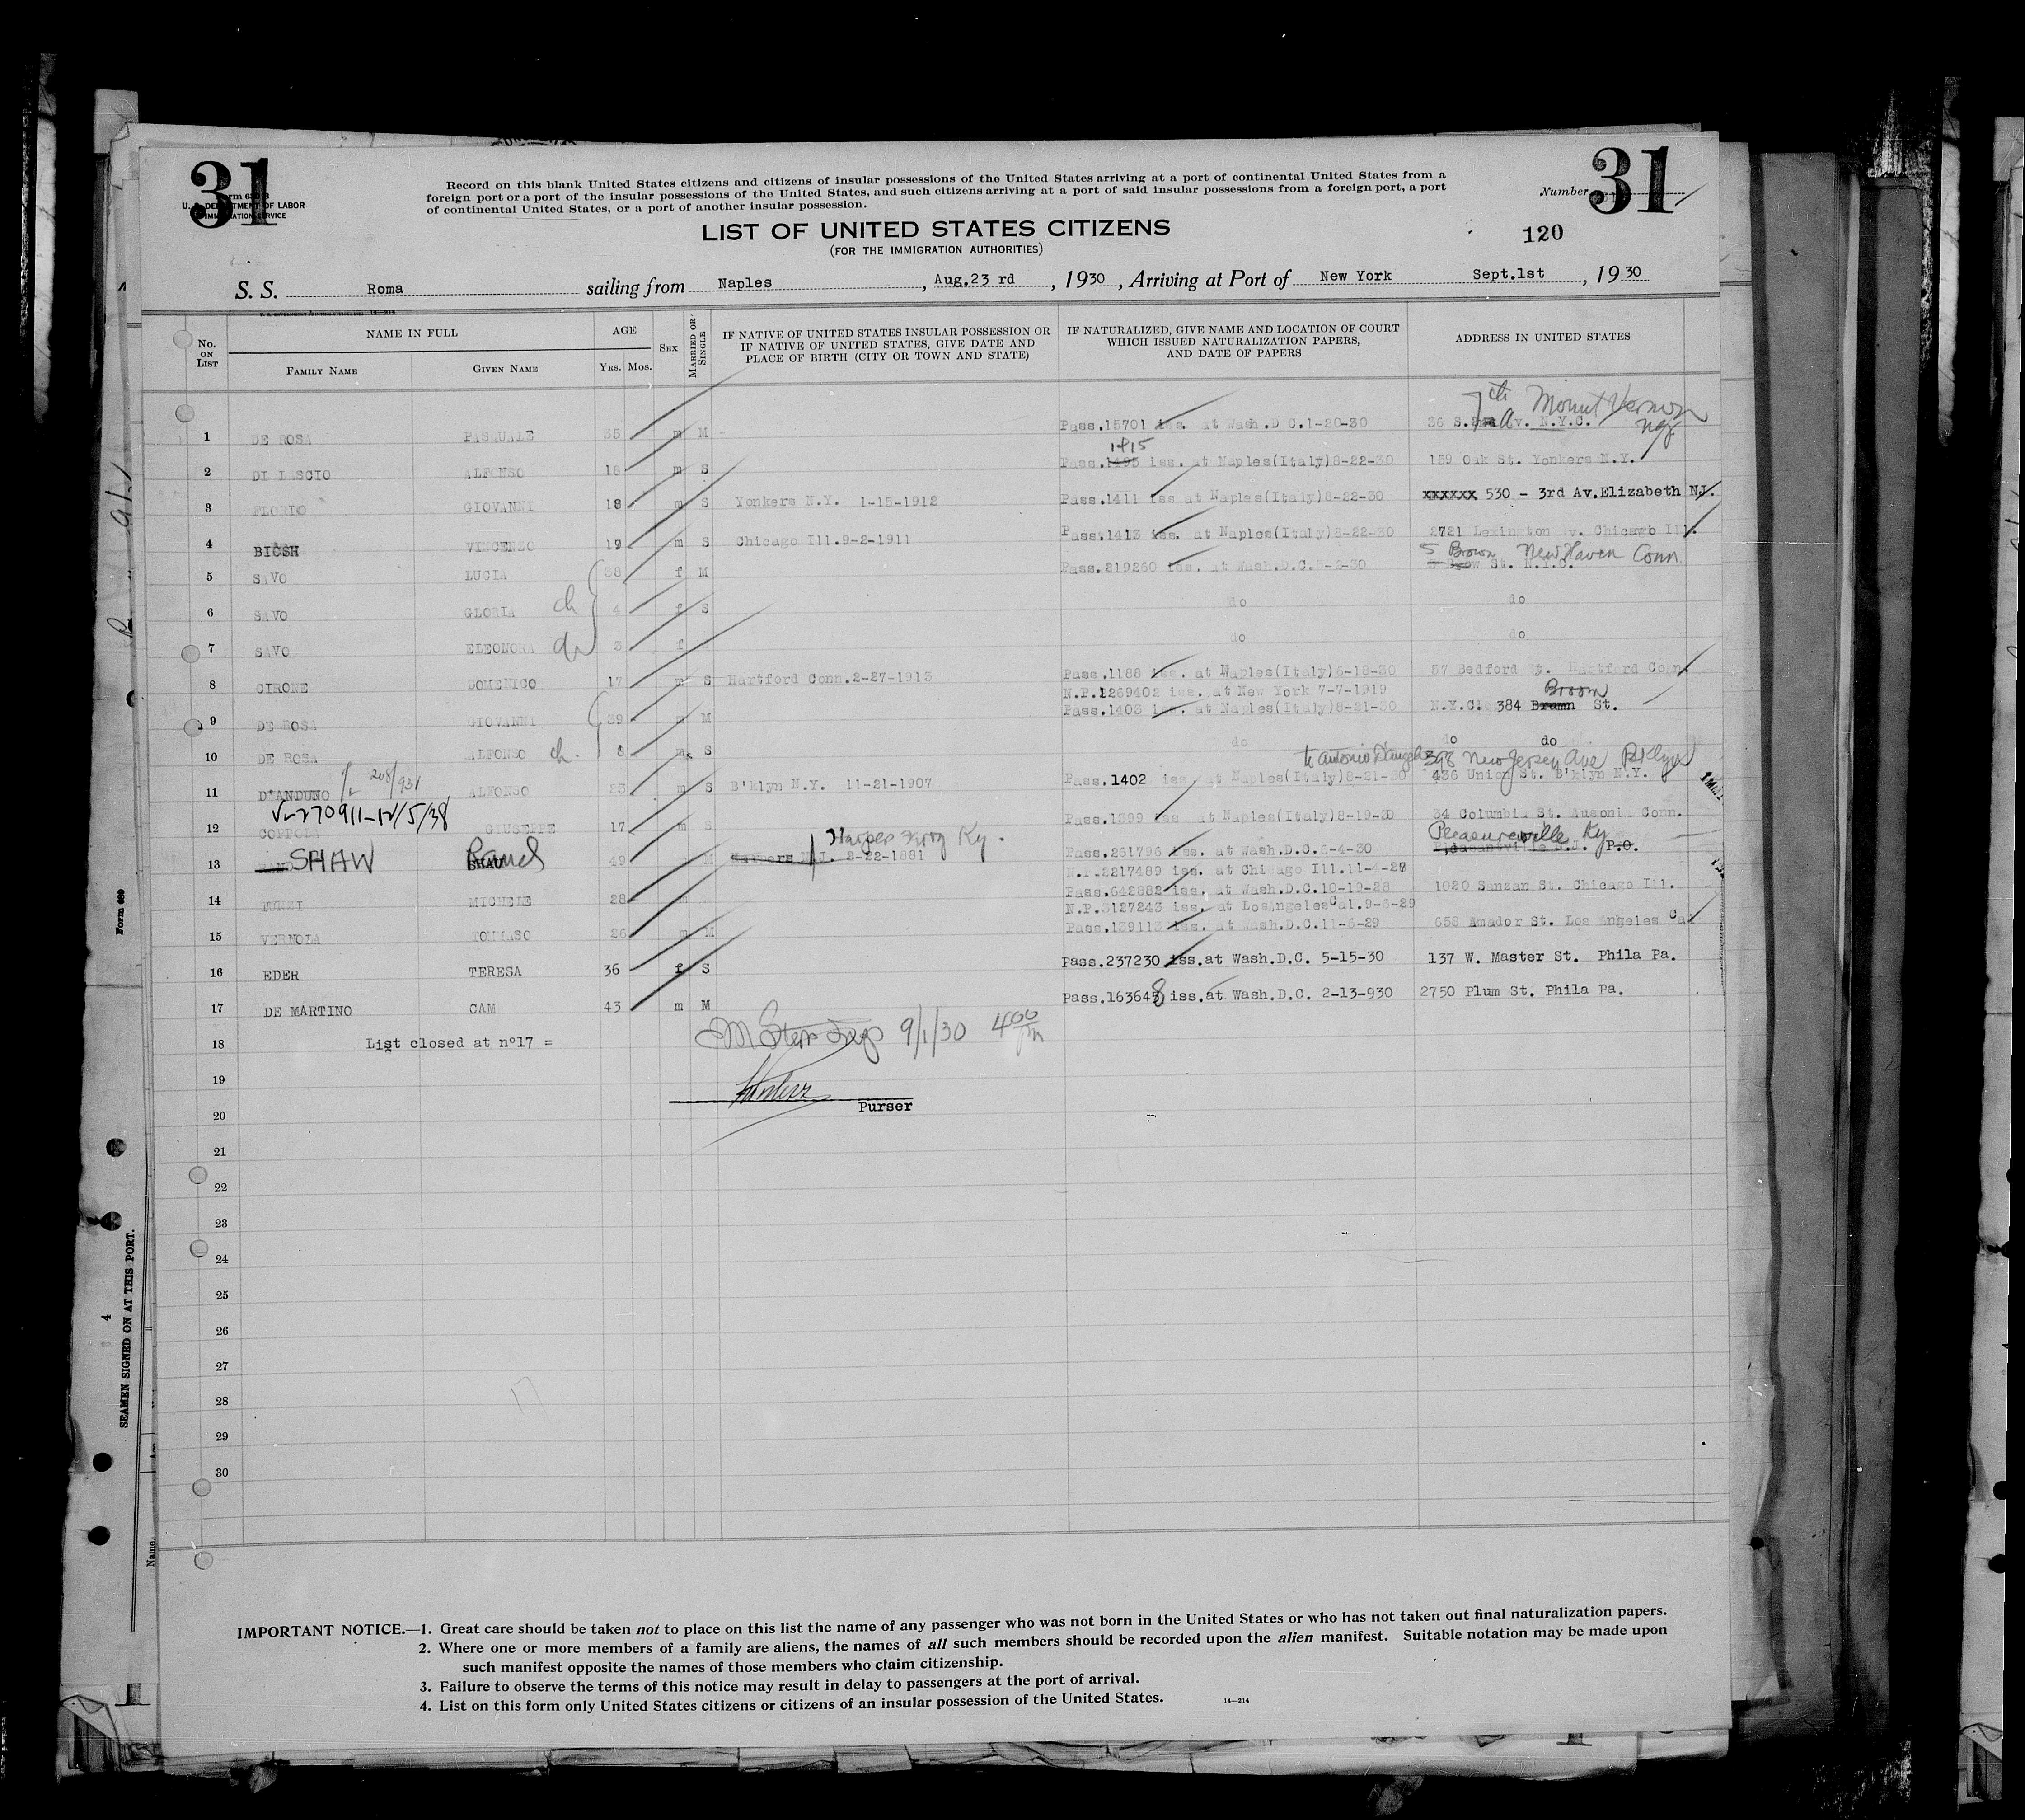 31
31
Form 630 B
U. S. DEPARTMENT OF LABOR
IMMIGRATION SERVICE
Record on this blank United States citizens and citizens of insular possessions of the United States arriving at a port of continental United States from a
foreign port or a port of the insular possessions of the United States, and such citizens arriving at a port of said insular possessions from a foreign port, a port
of continental United States, or a port of another insular possession.
Number
LIST OF UNITED STATES CITIZENS
(FOR THE IMMIGRATION AUTHORITIES)
120
S. S. Roma sailing from Naples , Aug.23 rd , 1930 , Arriving at Port of New York Sept.1st , 1930
No. ON LIST
NAME IN FULL
FAMILY NAME
GIVEN NAME
AGE
YRS. MOS.
SEX
MARRIED OR SINGLE
IF NATIVE OF UNITED STATES INSULAR POSSESSION OR
IF NATIVE OF UNITED STATES, GIVE DATE AND
PLACE OF BIRTH (CITY OR TOWN AND STATE)
IF NATURALIZED, GIVE NAME AND LOCATION OF COURT
WHICH ISSUED NATURALIZATION PAPERS,
AND DATE OF PAPERS
ADDRESS IN UNITED STATES
7th Mount Vernon
1 DE ROSA PASQUALE 35 m M Pass.15701 iss. at Wash.D C.1-20-30 36 S. Av. N.Y.C. NY
1415
2 DI LASCIO ALFONSO 18 m S Pass.1495 iss. at Naples(Italy)8-22-30 159 Oak St. Yonkers N.Y.
3 FLORIO GIOVANNI 18 m S Yonkers N.Y. 1-15-1912 Pass.1411 iss at Naples(Italy)8-22-30 xxxxxx 530 - 3rd Av.Elizabeth NJ.
4 BICSH VINCENZO 19 m S Chicago Ill.9-2-1911 Pass.1413 iss. at Naples(Italy)8-22-30 2721 Lexington Av. Chicawo Ill.
5 Brown New Haven Conn
5 SAVO LUCIA 38 f M Pass.219260 iss. at Wash.D.C.5-2-30 St. N.Y.C.
6 SAVO GLORIA ch 4 f S do do
7 SAVO ELEONORA ch 3 f do do
8 CIRONE DOMENICO 17 m S Hartford Conn.2-27-1913 Pass.1188 iss. at Naples(Italy)6-18-30 57 Bedford St. Hartford Conn.
N.P.1269402 iss. at New York 7-7-1919 Broom
9 DE ROSA GIOVANNI 39 m M Pass.1403 iss. at Naples(Italy)8-21-30 N.Y.C. 384 Bramn St.
10 DE ROSA ALFONSO ch. 8 m S do do do
to Antonio 398 New Jersey Ave Bklyn
11 D'ANDUNO ALFONSO 23 m S B'klyn N.Y. 11-21-1907 Pass.1402 iss. at Naples(Italy)8-21-30 436 Union St. B'klyn N.Y.
208/931
V-270911-12/5/38
12 COPPOLA GIUSEPPE 17 m S Pass.1399 iss at Naples(Italy)8-19-30 34 Columbia St. Ausonia Conn.
Harpes Ky. Pleasureville Ky
13 RAND SHAW SHAW Rand 49 M N.J. 2-22-1881 Pass.261796 iss. at Wash.D.C.6-4-30 Pleasantville N.J. P.O.
N.P.2217489 iss. at Chicago Ill.11-4-27
14 MICHELE 28 Pass.642882 iss. at Wash.D.C.10-19-28 1020 Sanzan St. Chicago Ill.
N.P.3127243 iss. at LosAngelesCal.9-6-29
15 VERNOLA TOMMASO 26 m M Pass.139113 iss. at Wash.D.C.11-6-29 658 Amador St. Los Angeles Cal
16 EDER TERESA 36 f S Pass.237230 iss.at Wash.D.C. 5-15-30 137 W. Master St. Phila Pa.
17 DE MARTINO CAM 43 m M Pass.163648 iss.at Wash.D.C. 2-13-930 2750 Plum St. Phila Pa.
18 List closed at n°17 = 9/1/30 4 00 pm
19
Purser
20
21
22
23
24
25
26
27
28
29
30
17
IMPORTANT NOTICE.—1. Great care should be taken not to place on this list the name of any passenger who was not born in the United States or who has not taken out final naturalization papers.
2. Where one or more members of a family are aliens, the names of all such members should be recorded upon the alien manifest. Suitable notation may be made upon
such manifest opposite the names of those members who claim citizenship.
3. Failure to observe the terms of this notice may result in delay to passengers at the port of arrival.
4. List on this form only United States citizens or citizens of an insular possession of the United States.
14—214
Form 689
SEAMEN SIGNED ON AT THIS PORT.
Name.